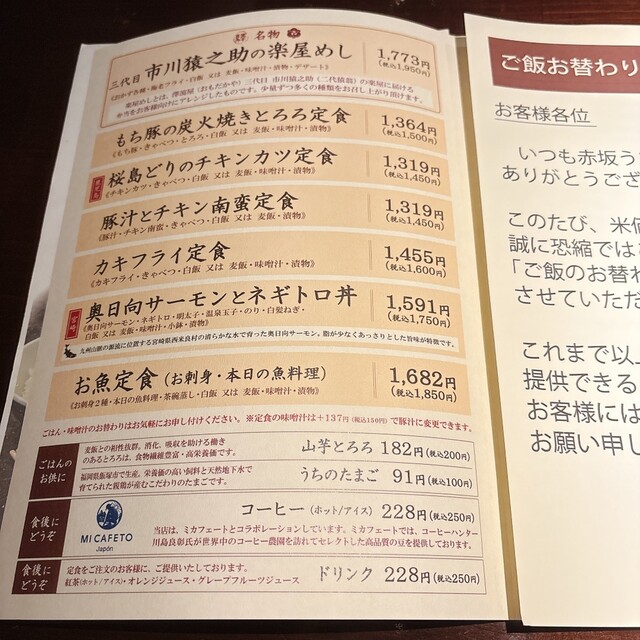 名物
三代目 市川猿之助の楽屋めし 1,773円
(税込1,950円)
《おかず各種・海老フライ・白飯 又は 麦飯・味噌汁・漬物・デザート》
楽屋めしとは、澤瀉屋(おもだかや)三代目 市川猿之助(二代猿翁)の楽屋に届ける
弁当をお客様向けにアレンジしたものです。少量ずつ多くの種類をお召し上がり頂けます。
もち豚の炭火焼きとろろ定食 1,364円
《もち豚・きゃべつ・とろろ・白飯 又は 麦飯・味噌汁・漬物》 (税込1,500円)
桜島どりのチキンカツ定食 1,319円
《チキンカツ・きゃべつ・白飯 又は 麦飯・味噌汁・漬物》 (税込1,450円)
豚汁とチキン南蛮定食 1,319円
《豚汁・チキン南蛮・きゃべつ・白飯 又は 麦飯・漬物》 (税込1,450円)
カキフライ定食 1,455円
《カキフライ・きゃべつ・白飯 又は 麦飯・味噌汁・漬物》 (税込1,600円)
宮崎 奥日向サーモンとネギトロ丼 1,591円
《奥日向サーモン・ネギトロ・明太子・温泉玉子・のり・白髪ねぎ・ (税込1,750円)
白飯 又は 麦飯・味噌汁・小鉢・漬物》
九州山脈の源流に位置する宮崎県西米良村の清らかな水で育った奥日向サーモン。脂が少なくあっさりとした旨味が特徴です。
お魚定食 (お刺身・本日の魚料理) 1,682円
《お刺身2種・本日の魚料理・茶碗蒸し・白飯 又は 麦飯・味噌汁・漬物》 (税込1,850円)
ごはん・味噌汁のお替わりはお気軽にお申し付けください。※定食の味噌汁は+137円(税込150円)で豚汁に変更できます。
ごはんのお供に
麦飯との相性抜群。消化、吸収を助ける働き
のあるとろろは、食物繊維豊富・高栄養価です。
山芋とろろ 182円(税込200円)
福岡県飯塚市で生産。栄養価の高い飼料と天然地下水で
育てられた親鶏が産むこだわりのたまごです。
うちのたまご 91円(税込100円)
食後にどうぞ
MI CAFETO
Japón
コーヒー (ホット/アイス) 228円(税込250円)
当店は、ミカフェートとコラボレーションしています。ミカフェートでは、コーヒーハンター
川島良彰氏が世界中のコーヒー農園を訪れてセレクトした高品質の豆を提供しております。
食後にどうぞ
定食をご注文のお客様に、ご提供いたしております。
紅茶(ホット/アイス)・オレンジジュース・グレープフルーツジュース
ドリンク 228円(税込250円)
ご飯お替わり
お客様各位
いつも赤坂う
ありがとうござ
このたび、米価
誠に恐縮では
「ご飯のお替わ
させていただ
これまで以
提供できる
お客様には
お願い申し